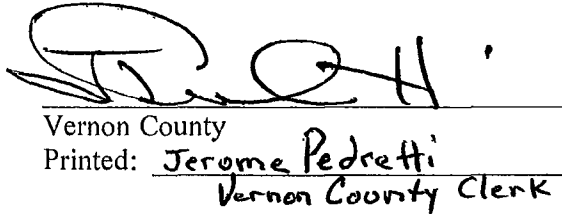 Vernon County
Printed: Jerome Pedretti
Vernon County Clerk